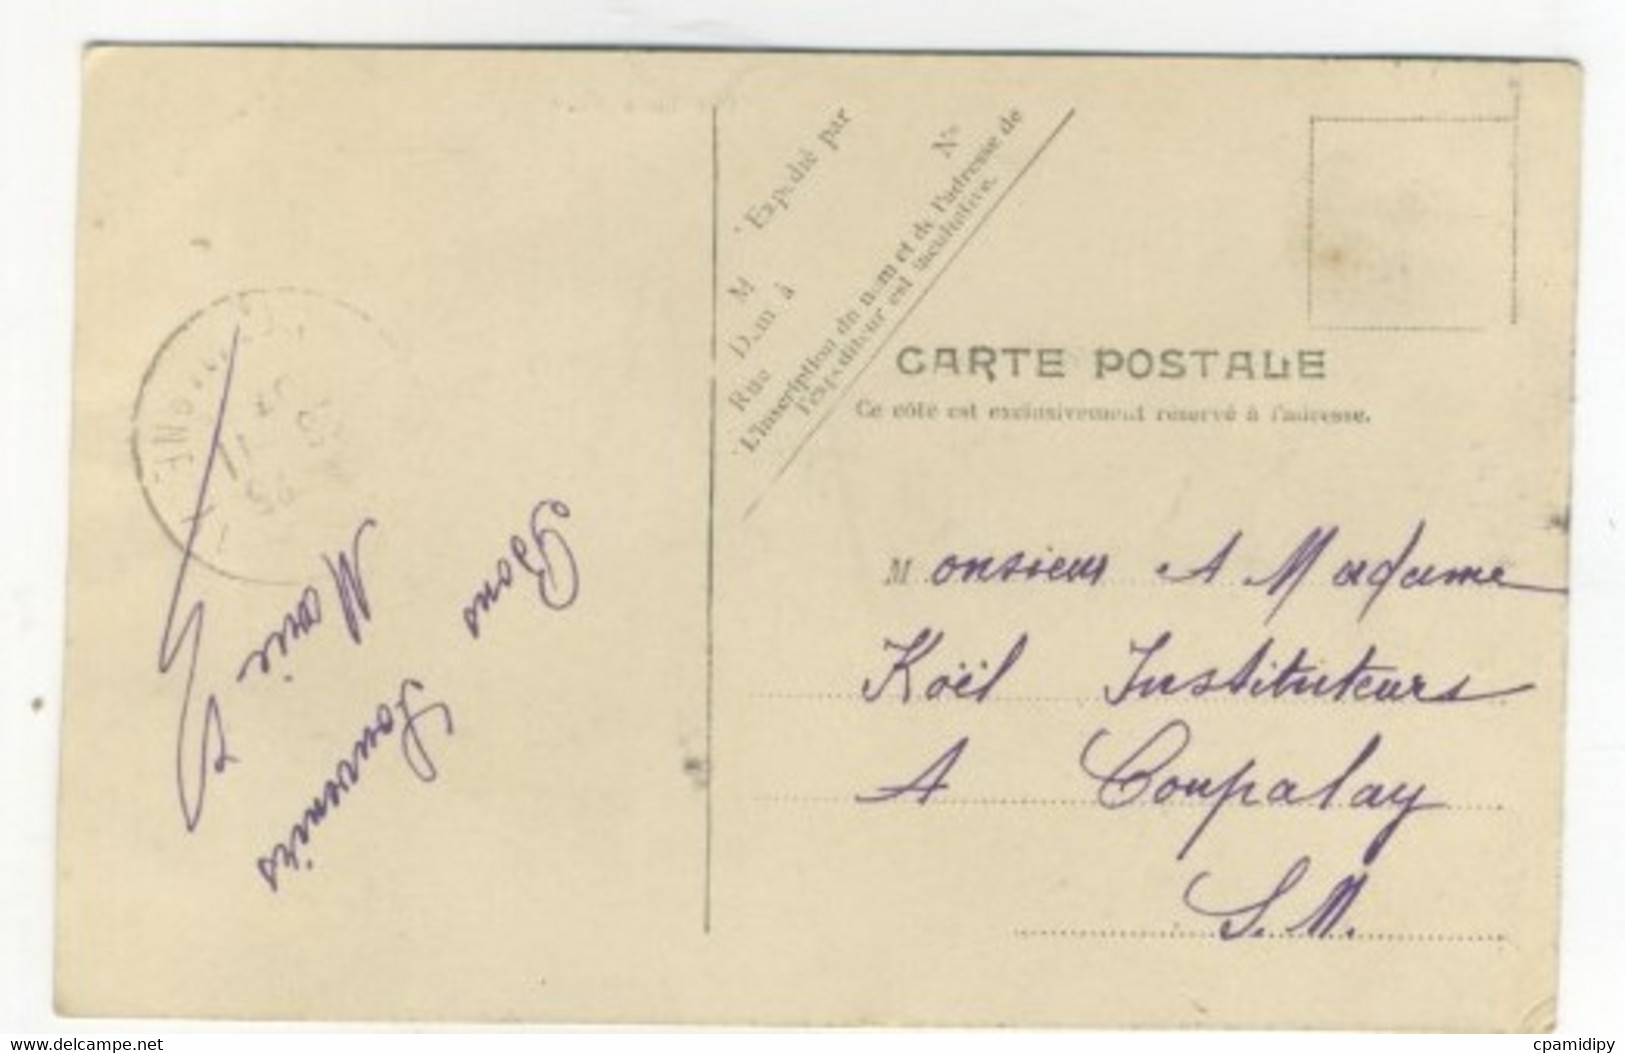 Expédié par
M N°
Dem à
Rue
L'inscription du nom et de l'adresse de
l'expéditeur est facultative.
CARTE POSTALE
Ce côté est exclusivement réservé à l'adresse.
Monsieur A Madame
Koël Instituteurs
A Coupalay
S.M.
Bons
Souvenirs
Marie
www.delcampe.net
cpamidipy